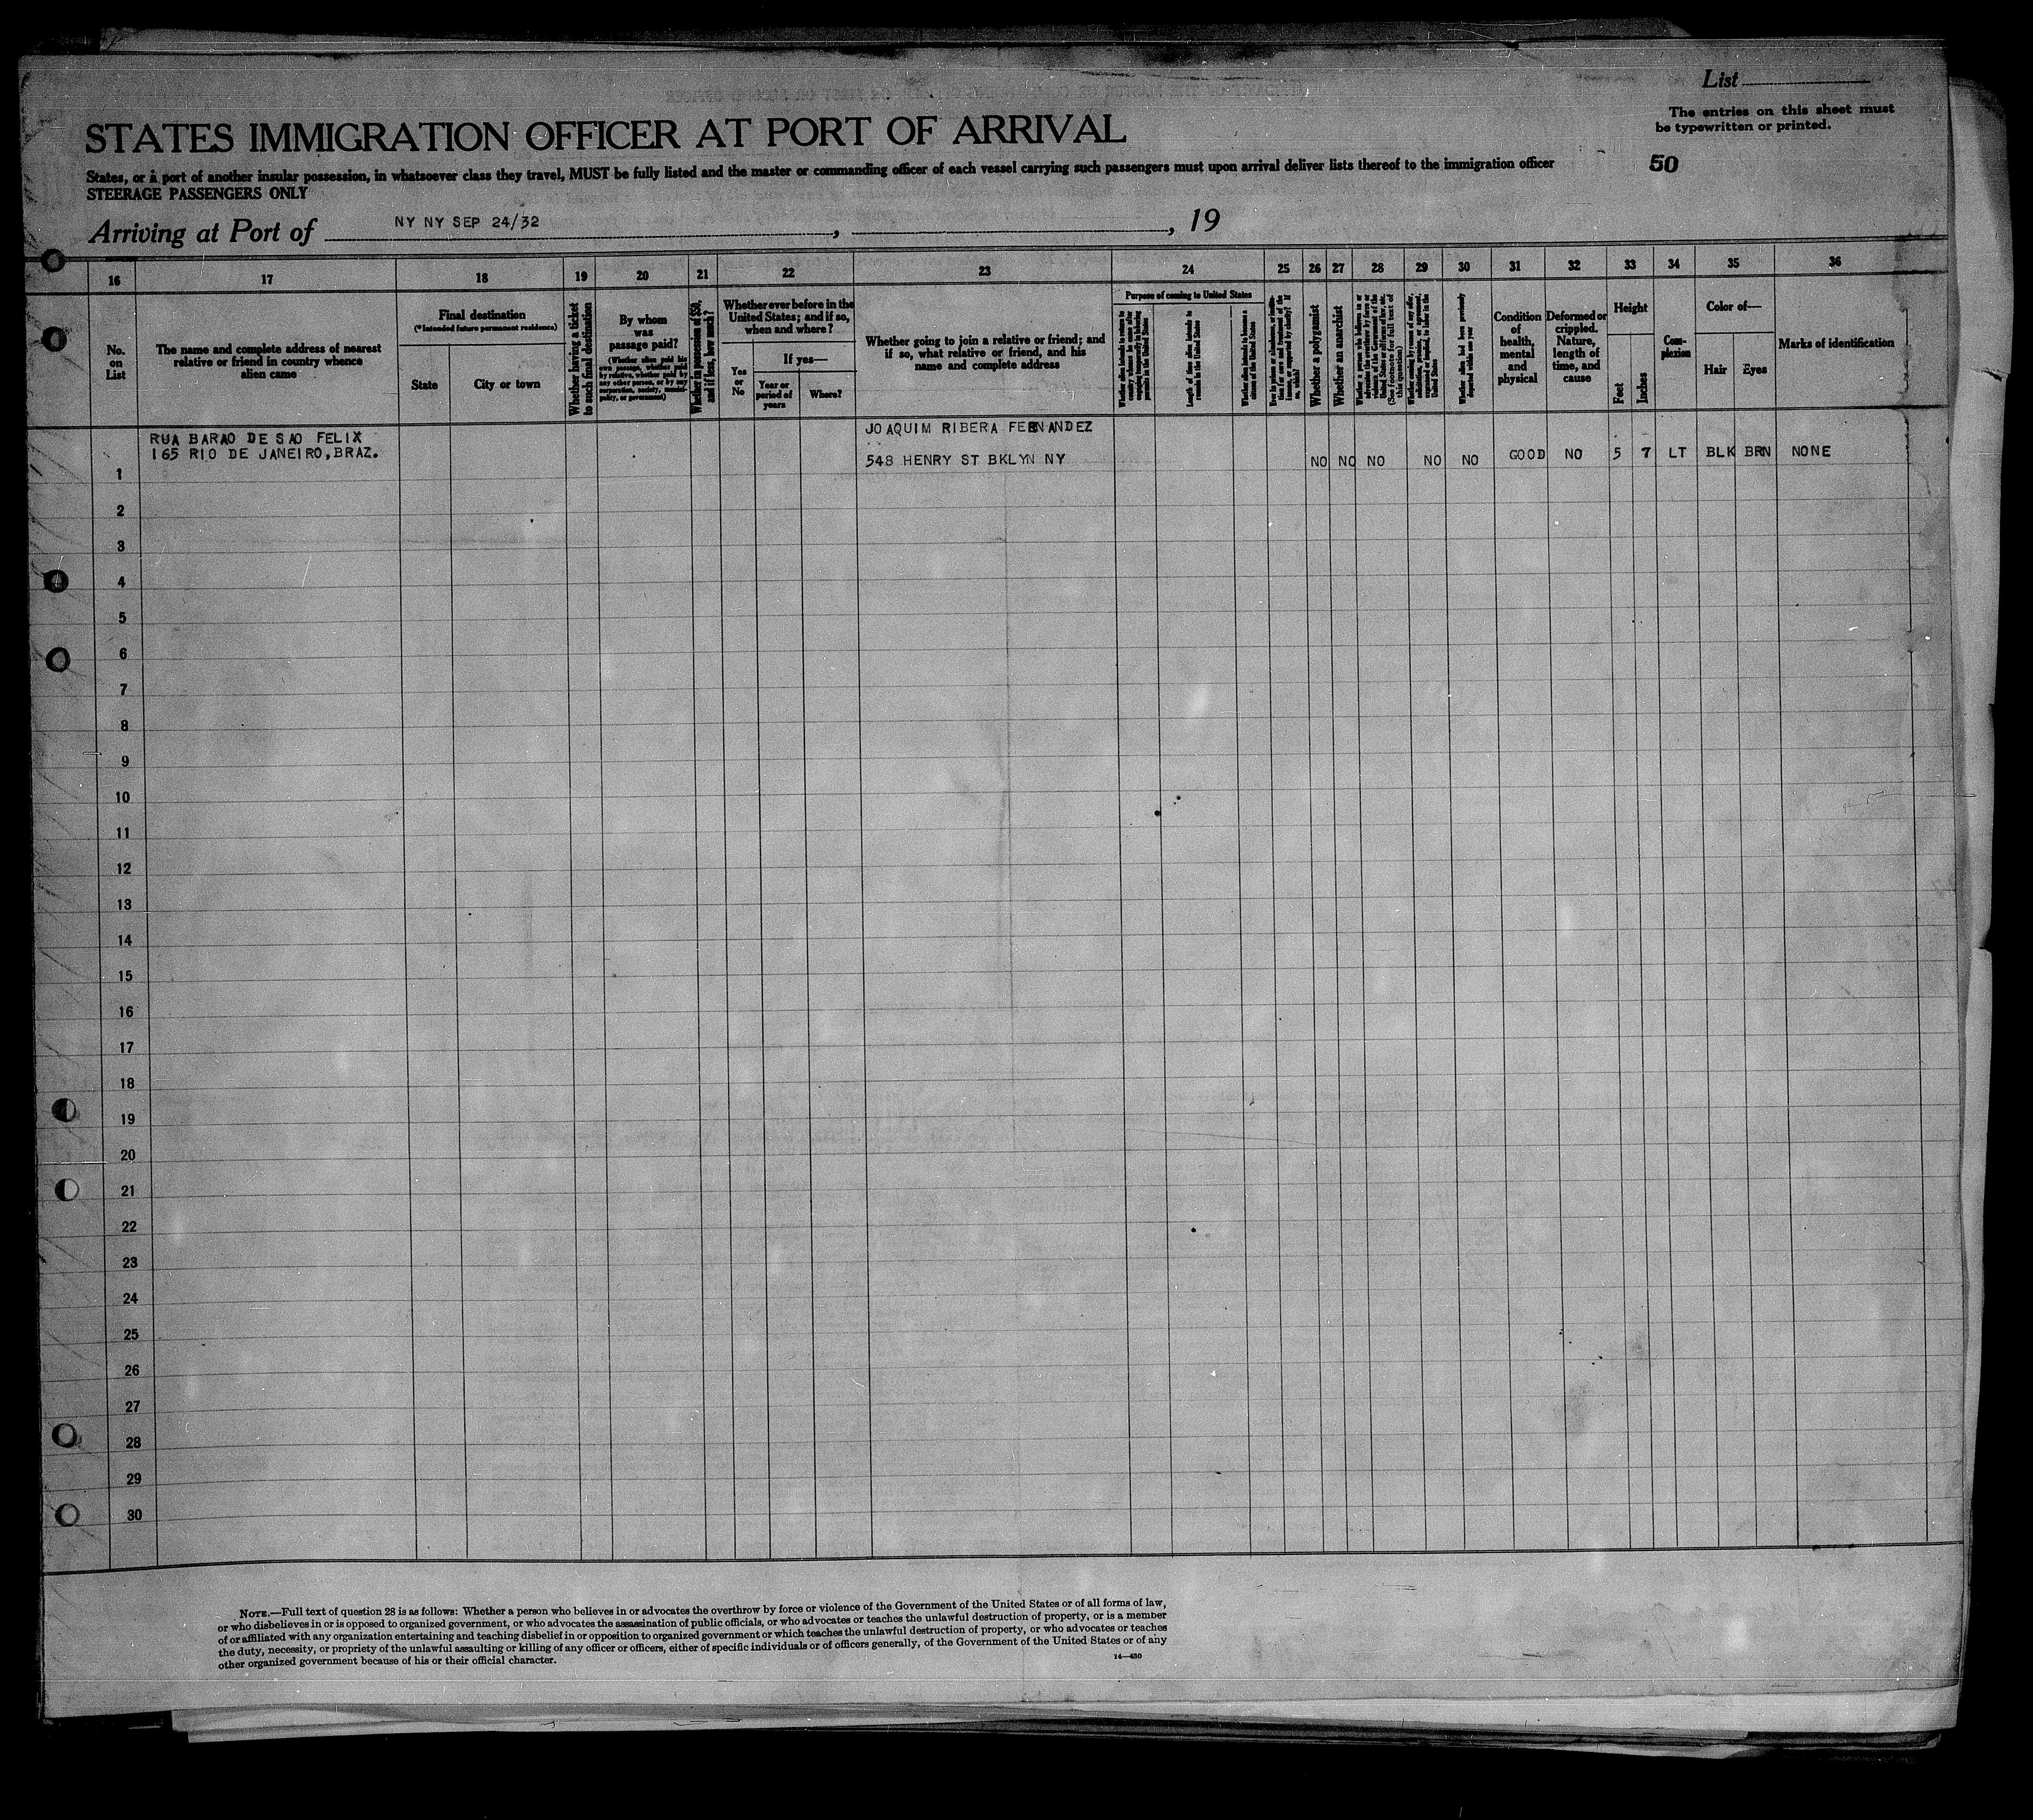 List
The entries on this sheet must
be typewritten or printed.
STATES IMMIGRATION OFFICER AT PORT OF ARRIVAL
50
States, or a port of another insular possession, in whatsoever class they travel, MUST be fully listed and the master or commanding officer of each vessel carrying such passengers must upon arrival deliver lists thereof to the immigration officer
STEERAGE PASSENGERS ONLY
Arriving at Port of NY NY SEP 24/32 , , 19
16 17 18 19 20 21 22 23 24 25 26 27 28 29 30 31 32 33 34 35 36
No.
on
List
The name and complete address of nearest
relative or friend in country whence
alien came
Final destination
(*Intended future permanent residence)
State
City or town
Whether having a ticket
to such final destination
By whom
was
passage paid?
(Whether alien paid his
own passage, whether paid
by relative, whether paid by
any other person, or by any
corporation, society, munici-
pality, or government)
Whether in possession of $50,
and if less, how much?
Whether ever before in the
United States; and if so,
when and where?
Yes
or
No
If yes—
Year or
period of
years
Where?
Whether going to join a relative or friend; and
if so, what relative or friend, and his
name and complete address
Purpose of coming to United States
Length of time alien intends to
remain in the United States
Whether alien intends to become a
citizen of the United States
Whether a polygamist
Whether an anarchist
(See footnote for full text of
this question)
Whether alien had been previously
deported within one year
Condition
of
health,
mental
and
physical
Deformed or
crippled.
Nature,
length of
time, and
cause
Height
Feet
Inches
Com-
plexion
Color of—
Hair
Eyes
Marks of identification
RUA BARAO DE SAO FELIX
165 RIO DE JANEIRO, BRAZ.
JOAQUIM RIBERA FERNANDEZ
548 HENRY ST BKLYN NY
NO NO NO NO NO GOOD NO 5 7 LT BLK BRN NONE
1
2
3
4
5
6
7
8
9
10
11
12
13
14
15
16
17
18
19
20
21
22
23
24
25
26
27
28
29
30
NOTE.—Full text of question 28 is as follows: Whether a person who believes in or advocates the overthrow by force or violence of the Government of the United States or of all forms of law,
or who disbelieves in or is opposed to organized government, or who advocates the assassination of public officials, or who advocates or teaches the unlawful destruction of property, or is a member
of or affiliated with any organization entertaining and teaching disbelief in or opposition to organized government or which teaches the unlawful destruction of property, or who advocates or teaches
the duty, necessity, or propriety of the unlawful assaulting or killing of any officer or officers, either of specific individuals or of officers generally, of the Government of the United States or of any
other organized government because of his or their official character.
14—430